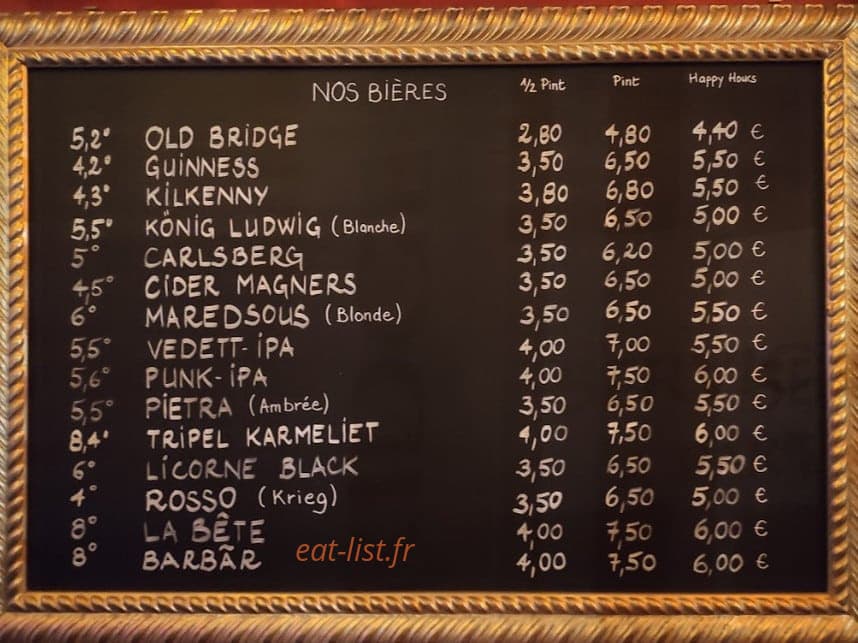 NOS BIÈRES 1/2 Pint Pint Happy Hours
5,2° OLD BRIDGE 2,80 4,80 4,40 €
4,2° GUINNESS 3,50 6,50 5,50 €
4,3° KILKENNY 3,80 6,80 5,50 €
5,5° KÖNIG LUDWIG (Blanche) 3,50 6,50 5,00 €
5° CARLSBERG 3,50 6,20 5,00 €
4,5° CIDER MAGNERS 3,50 6,50 5,00 €
6° MAREDSOUS (Blonde) 3,50 6,50 5,50 €
5,5° VEDETT-IPA 4,00 7,00 5,50 €
5,6° PUNK-IPA 4,00 7,50 6,00 €
5,5° PIETRA (Ambrée) 3,50 6,50 5,50 €
8,4° TRIPEL KARMELIET 4,00 7,50 6,00 €
6° LICORNE BLACK 3,50 6,50 5,50 €
4° ROSSO (Krieg) 3,50 6,50 5,00 €
8° LA BÊTE 4,00 7,50 6,00 €
8° BARBÃR 4,00 7,50 6,00 €
eat-list.fr